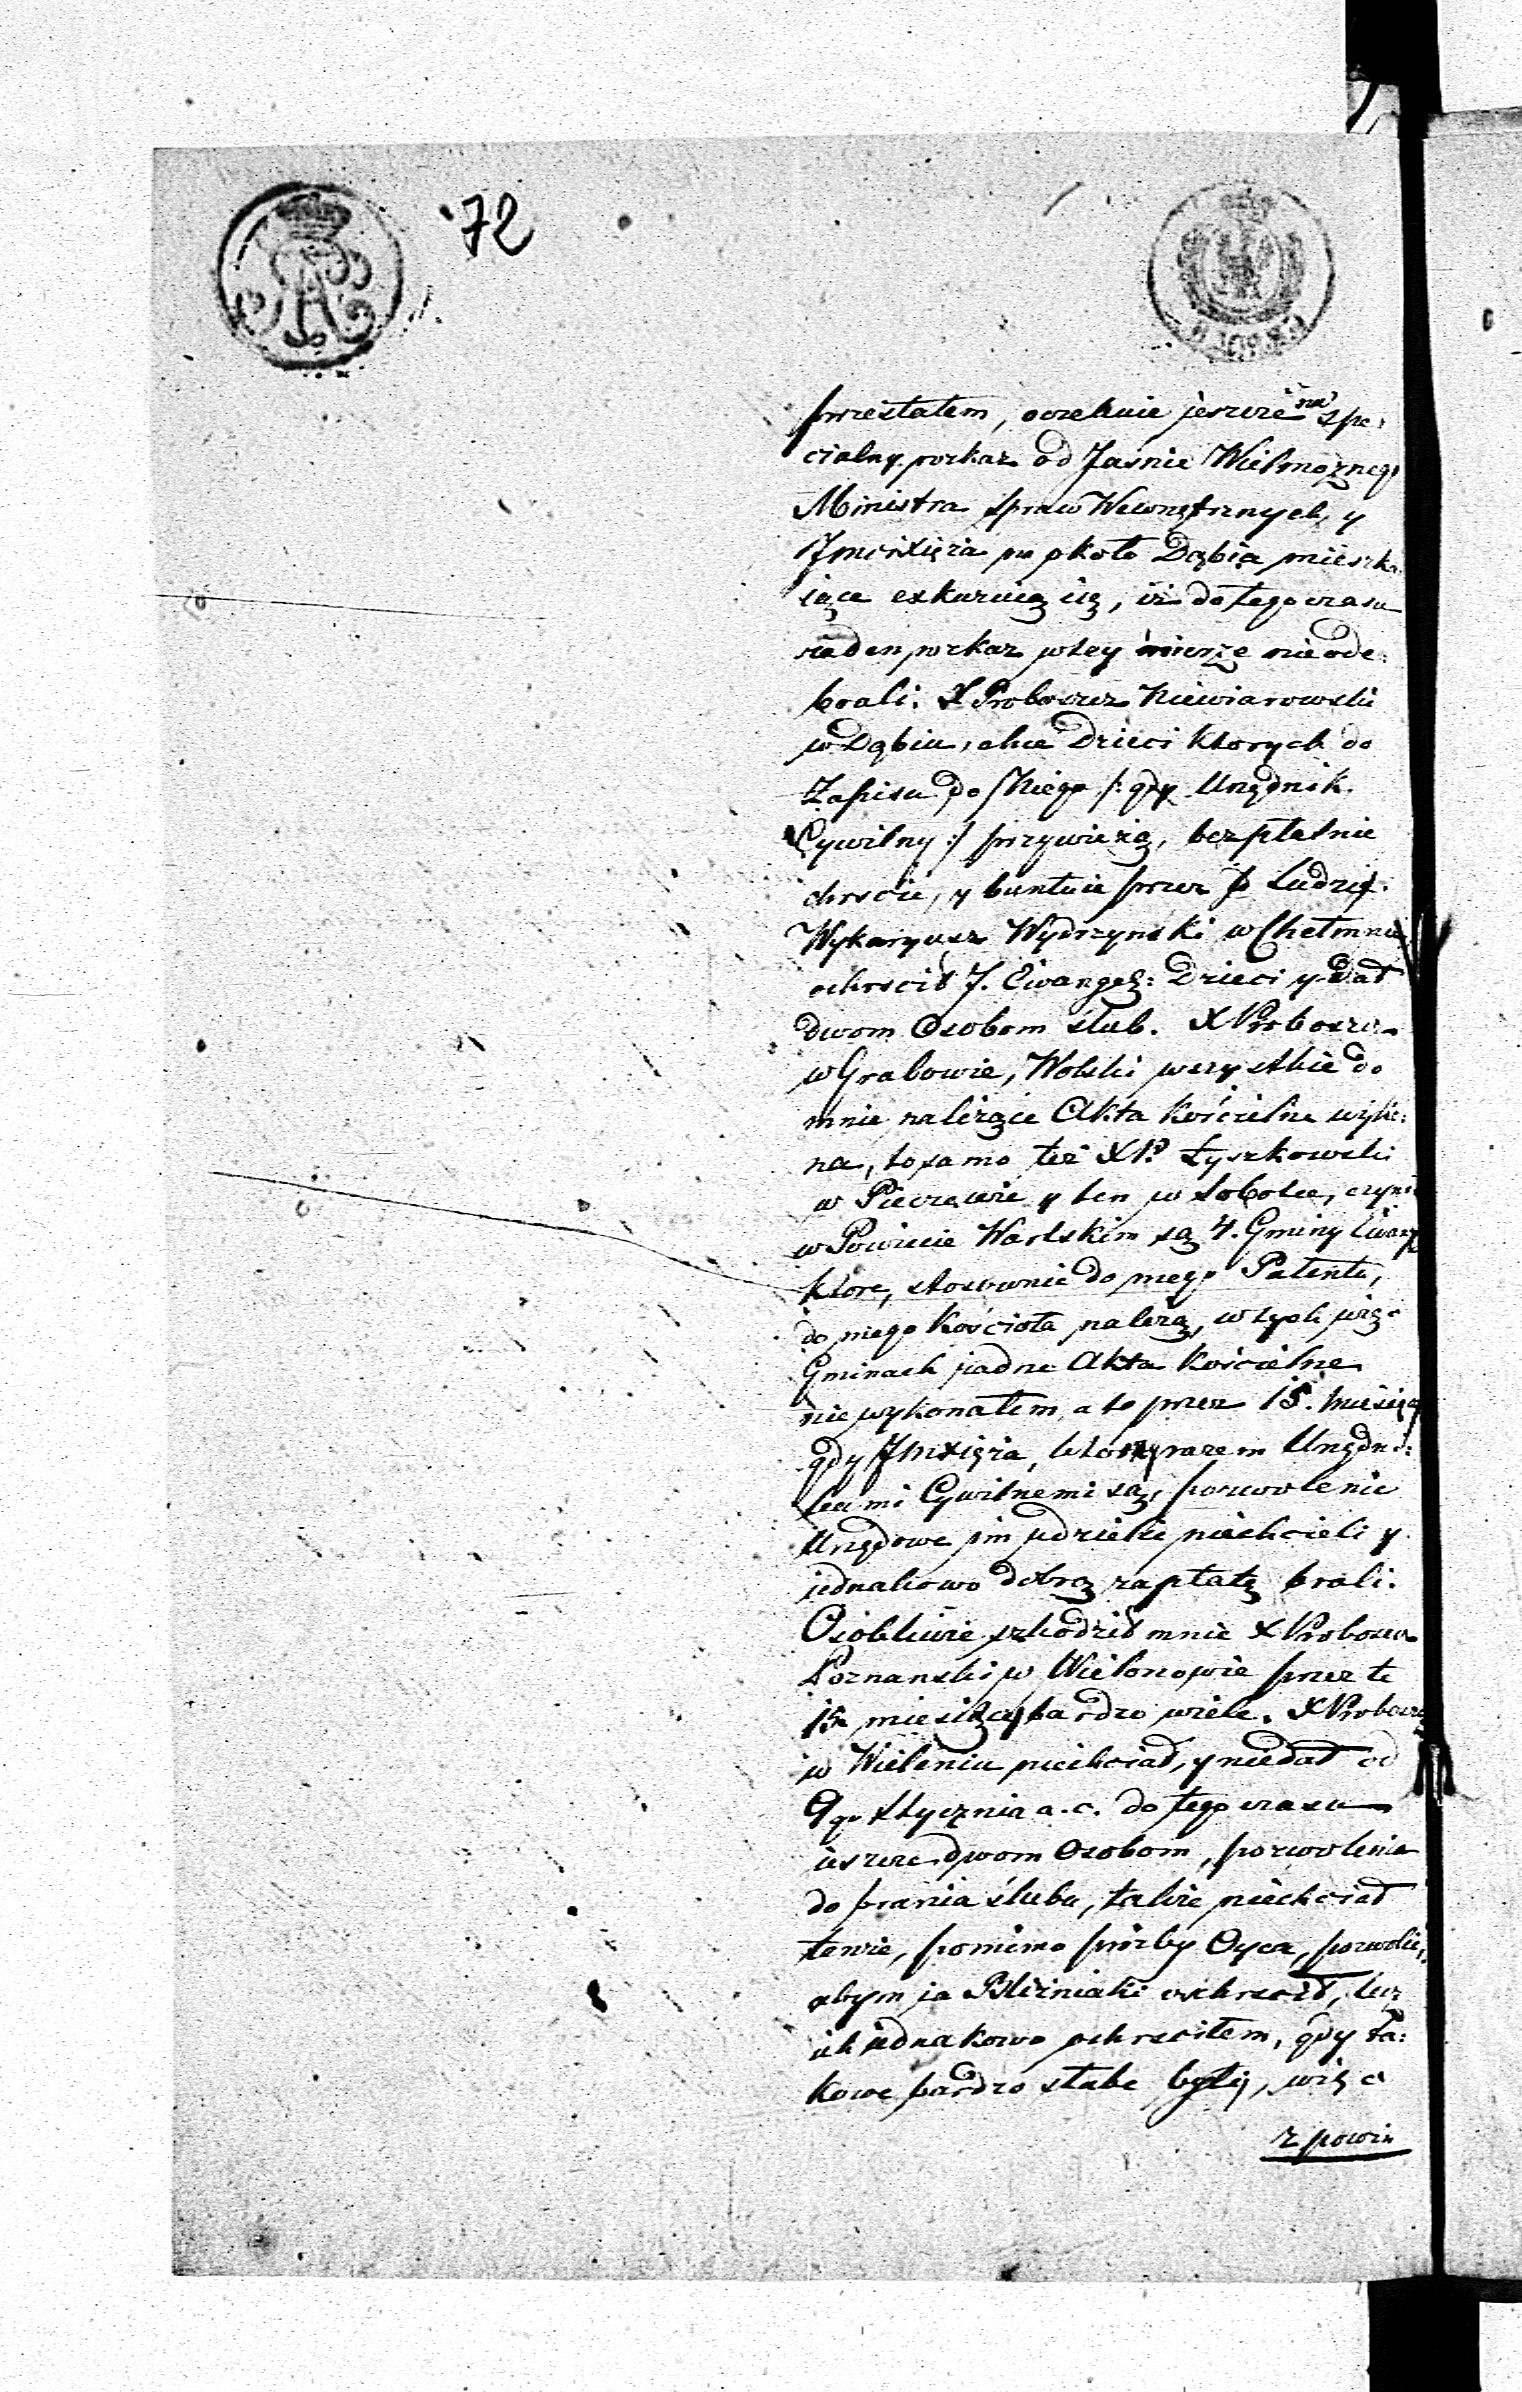 72
przestałem, oczekuie jeszcze na spe:
cialny pozkaz od Jasnie Wielmoznego
Ministra Spraw Wewnętrznych, y
Imcixięża około Dąbia mieszka
iące exkuzuią się, iż do tego czasu
żaden pozkaz w tey mierze nie ode:
brali. X Proboszcz Niewiarowski
w Dąbiu, chce Dzieci ktorych do
Zapisu do Niego /: gdy Urzędnik
Cywilny :/ przywieżą, bezpłatnie
chrscic, y buntuie przez to Ludzi.
Wykaryusz Wydrzynski w Chełmnie
ochrscił 7. Ewangel: Dzieci y dał
dwom Osobom slub. X Proboszcz
w Grabowie, Wolski wszystkie do
mnie należące Akta Kościelne wyko:
na, to samo też X P. Łyszkowski
w Pieczewie y ten w Sobotce, czyni
w Powiecie Wartskim są 4. Gminy Ewang
ktore, stosownie do mego Patentu,
do mego Kościoła należą, w tych więc
Gminach żadne Akta Kościelne
nie wykonałem, a to przez 15. Miesięcy
gdy Imxięża, ktorzy razem Urzędni:
kami Cywilnemi są, pozwolenie
Urzędowe im udzielić niechcieli y
jednakowo dobrą zapłatę brali.
Osobliwie szkodził mnie X Proboszcz
Poznanski w Wielonowie przez te
15 miesięcy bardzo wiele. X Proboszcz
w Wieleniu niechciał, y niedał od
9go Stycznia a. c. do tego czasu
ieszcze dwom Osobom, pozwolenia
do brania ślubu, także niechciał
tenże, pomimo prożby Oyca, pozwolić,
abym ja Bliźniaki ochrscił, lecz
ich jednakowo ochrsciłem, gdy ta:
kowe bardzo słabe były, więc
z powin